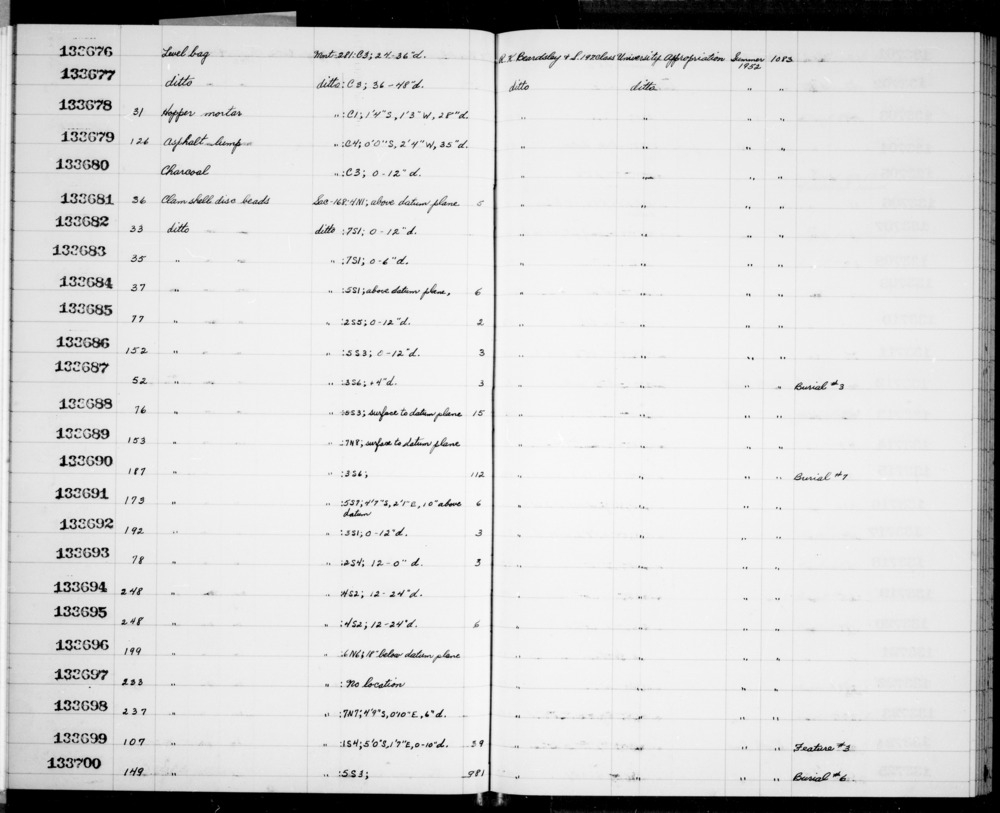 133676 Level bag Mont-281:C3; 24-36"d. R.K. Beardsley & class University Appropriation Summer 1952 1083
133677 ditto ditto: C3; 36-48"d. ditto ditto " "
133678 31 Hopper mortar ":C1; 1'4"S, 1'3"W, 28"d. " " " "
133679 126 Asphalt lump ":C4; 0'0"S, 2'4"W, 35"d. " " " "
133680 Charcoal ":C3; 0-12"d. " " " "
133681 36 Clam shell disc beads Sac-168:4N1; above datum plane 5 " " " "
133682 33 ditto ditto :7S1; 0-12"d. " " " "
133683 35 " " :7S1; 0-6"d. " " " "
133684 37 " " :5S1; above datum plane, 6 " " " "
133685 77 " " :2S5; 0-12"d. 2 " " " "
133686 152 " " :5S3; 0-12"d. 3 " " " "
133687 52 " " :3S6; +4"d. 3 " " " " Burial #3
133688 76 " " :0S3; surface to datum plane 15 " " " "
133689 153 " " :7N8; surface to datum plane " " " "
133690 187 " " :3S6; 112 " " " " Burial #7
133691 173 " " :5S7; 4'7"S, 2'1"E, 10" above 6 " " " "
datum
133692 192 " " :3S1; 0-12"d. 3 " " " "
133693 78 " " :2S4; 12-0"d. 3 " " " "
133694 248 " " :4S2; 12-24"d. " " " "
133695 248 " " :4S2; 12-24"d. 6 " " " "
133696 199 " " :6N6; 18" below datum plane " " " "
133697 233 " " : No location " " " "
133698 237 " " :7N7; 4'9"S, 0'10"E, 6"d. " " " "
133699 107 " " :1S4; 5'0"S, 1'7"E, 0-10"d. 39 " " " " Feature #3
133700 149 " " :5S3; 981 " " " " Burial #6